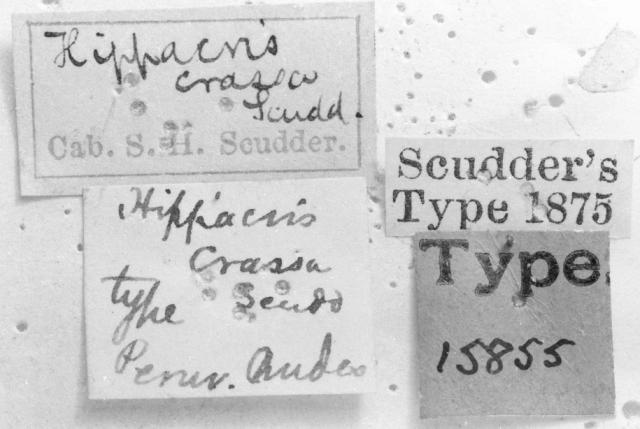 Hippacris
crassa
Scudd.
Cab. S. H. Scudder.
Hippacris
Crassa
type Scudd
Peruv. Andes
Scudder's
Type 1875
Type
15855